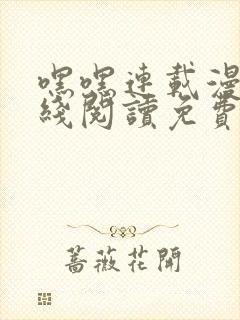 嘿嘿連載漫
綫閱讀免費
薔薇花開